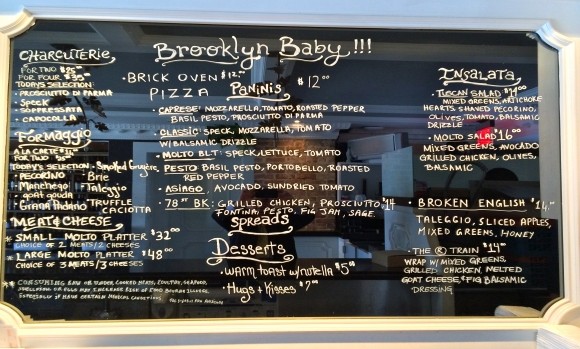 CHARCUTERIE
FOR TWO $25
FOR FOUR $35
TODAYS SELECTION:
• PROSCIUTTO DI PARMA
• SPECK
• SOPRESSATA
• CAPOCOLLA
FORMAGGIO
A LA CARTE
FOR TWO
TODAY'S SELECTION • Smoked Gruyere
• PECORINO • Brie
• Manchego • Taleggio
• goat gouda
• Grana Padano • TRUFFLE CACIOTTA
MEAT & CHEESE
* SMALL MOLTO PLATTER $32.00
CHOICE OF 2 MEATS/2 CHEESES
* LARGE MOLTO PLATTER $48.00
CHOICE OF 3 MEATS/3 CHEESES
** CONSUMING RAW OR UNDER COOKED MEATS, POULTRY, SEAFOOD,
SHELLFISH OR EGGS MAY INCREASE RISK OF FOOD BOURNE ILLNESS
ESPECIALLY IF HAVE CERTAIN MEDICAL CONDITIONS
Brooklyn Baby !!!
• BRICK OVEN $12
PIZZA
PANINIS $12.00
• CAPRESE: MOZZARELLA, TOMATO, ROASTED PEPPER
BASIL PESTO, PROSCIUTTO DI PARMA
• CLASSIC: SPECK, MOZZARELLA, TOMATO
W/ BALSAMIC DRIZZLE
• MOLTO BLT: SPECK, LETTUCE, TOMATO
• PESTO BASIL PESTO, PORTOBELLO, ROASTED
RED PEPPER
• ASIAGO, AVOCADO, SUNDRIED TOMATO
• 78TH BK: GRILLED CHICKEN, PROSCIUTTO $14
FONTINA, PESTO, FIG JAM, SAGE.
spreads
Desserts
• WARM TOAST w/nutella $5.00
• Hugs + Kisses $7.00
INSALATA
• TUSCAN SALAD $14.00
MIXED GREENS, ARTICHOKE
HEARTS SHAVED PECORINO,
OLIVES, TOMATO, BALSAMIC
DRIZZLE
• MOLTO SALAD $16.00
MIXED GREENS, AVOCADO
GRILLED CHICKEN, OLIVES,
BALSAMIC
• BROKEN ENGLISH $14
TALEGGIO, SLICED APPLES,
MIXED GREENS, HONEY
• THE Ⓡ TRAIN $14
WRAP W/ MIXED GREENS,
GRILLED CHICKEN, MELTED
GOAT CHEESE, FIG BALSAMIC
DRESSING